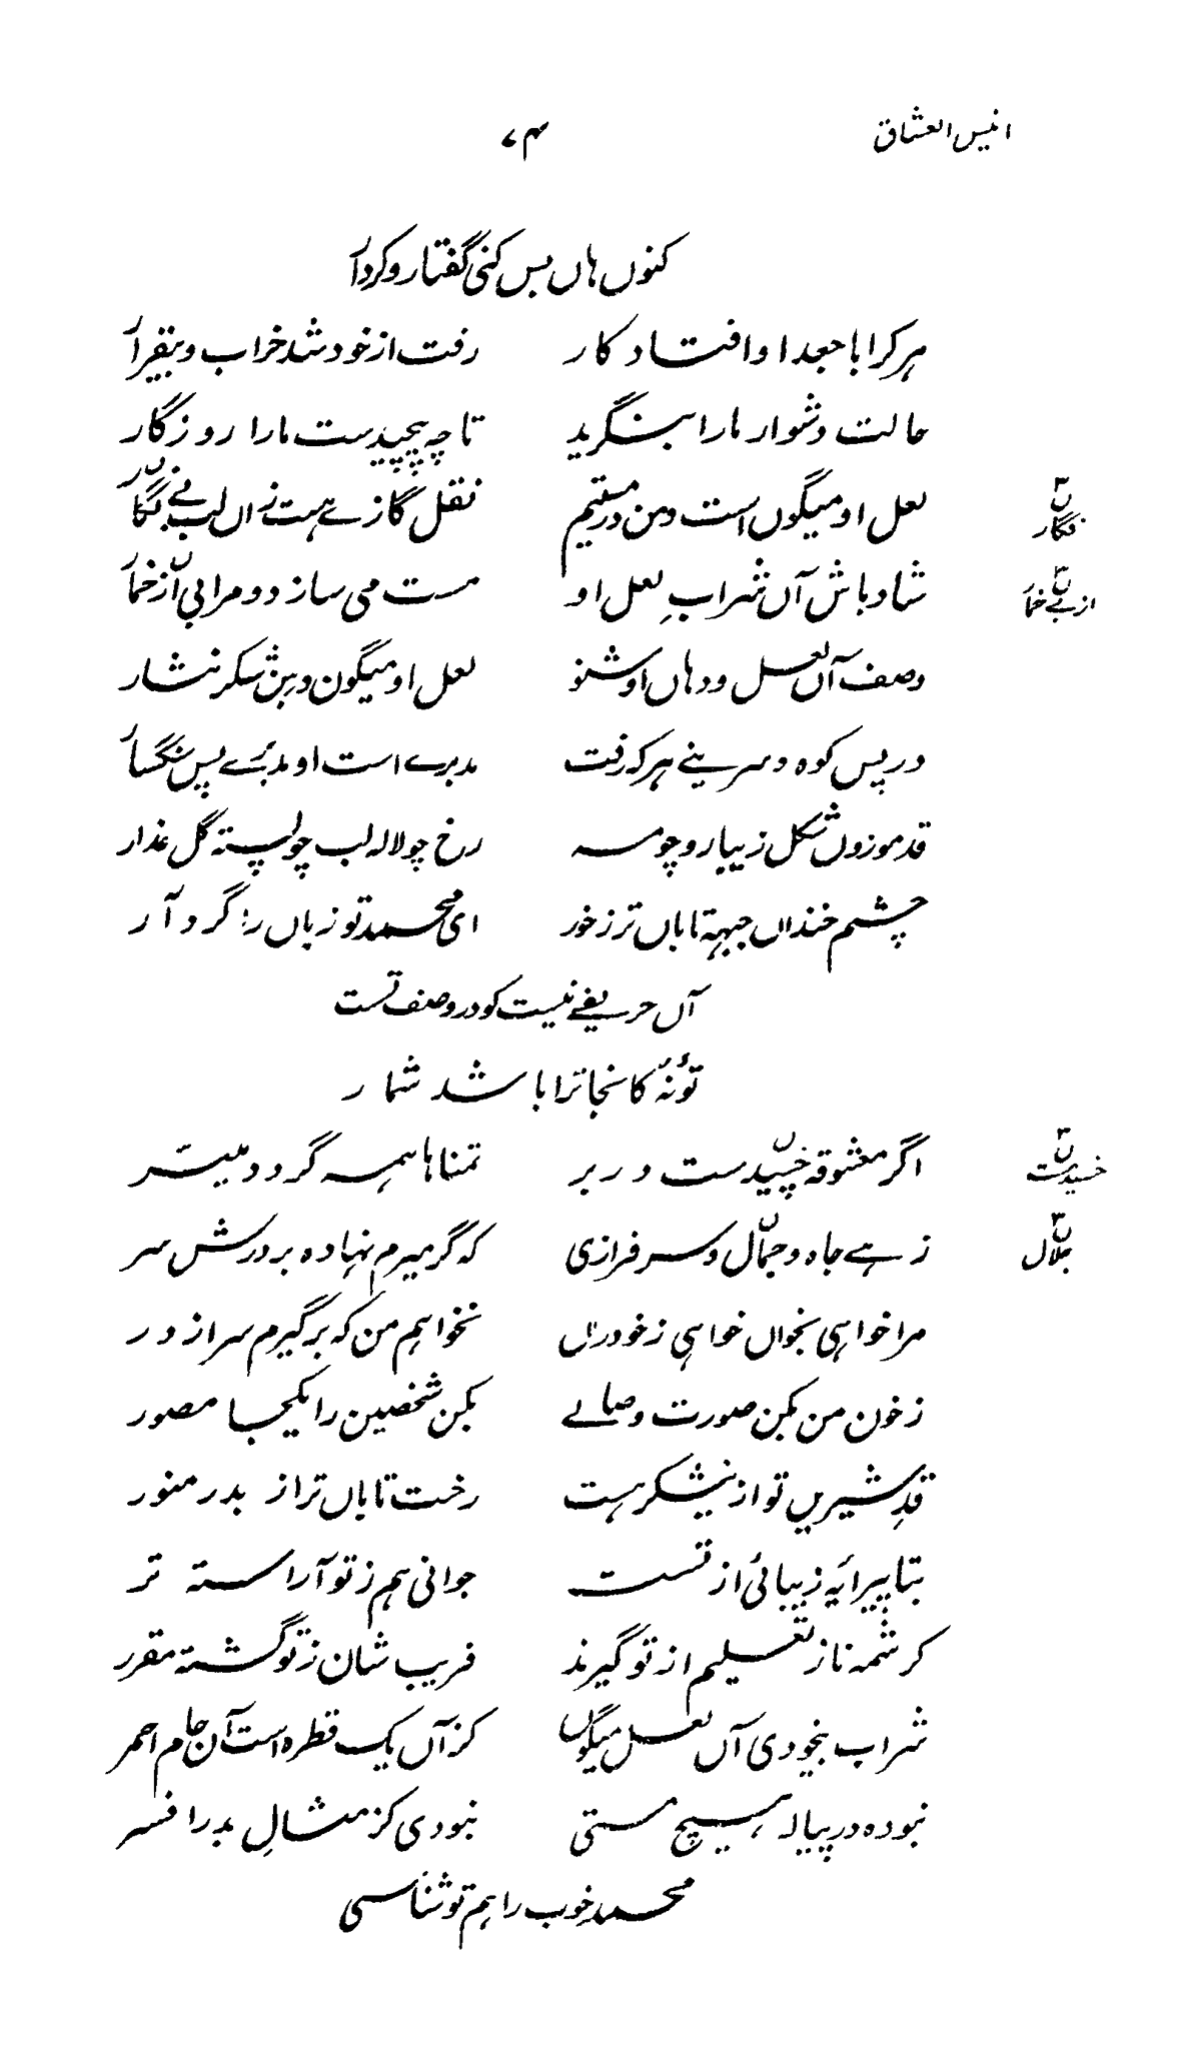 انیس العشاق ۷۴
کنوں ہاں بس کنی گفتار و کردار
ہر کرا با جعد او افتاد کار رفت از خود شد خراب و بیقرار
حالت دشوار ما را بنگرید تا چہ پیچیدست ما را روزگار
لعل او میگوں است دہن در مستیم نقل گازے ہست زاں لب بے نگار
ن۳ نگار
شاد باش آں شرابِ لعل او مست می سازد و مرا بی از خمار
ن۳ از بے خمار
وصف آں لعل و دہاں او شنو لعل او میگون دہن شکر نثار
در پس کوہ و سرینے ہر کہ رفت مدبرے است او مدبرے پس سنگسار
قد موزوں شکل زیبا رو چو مہ رخ چو لالہ لب چو پستہ گل عذار
چشم خنداں جبہۃ تاباں تر ز خور ای محمد تو زباں را گرد آر
آں حریفے نیست کو در وصف تست
تو نۂ کانجا ترا باشد شمار
اگر معشوقہ خسپیدست در بر تمناہا ہمہ گردد میسّر
ن۳ خسپیدست
زہے جاہ و جمال و سرفرازی کہ گر میرم نہادہ بر درش سر
ن۳ جلال
مرا خواہی بخواں خواہی ز خود راں نخواہم من کہ بر گیرم سر از در
ز خون من بکن صورت وصالے بکن شخصین را یکجا مصور
قدِ شیریں تو از نیشکر ہست رخت تاباں تر از بدر منور
بتا پیرایۂ زیبائی از تست جوانی ہم ز تو آراستہ تر
کرشمہ ناز تعلیم از تو گیرند فریب شان ز تو گشتہ مقرر
شراب بیخودی آں لعل میگوں کز آں یک قطرہ است آن جام احمر
نبودہ در پیالہ ہیچ مستی نبودی کز مثالِ بدرا فسر
محمد خوب را ہم تو شناسی